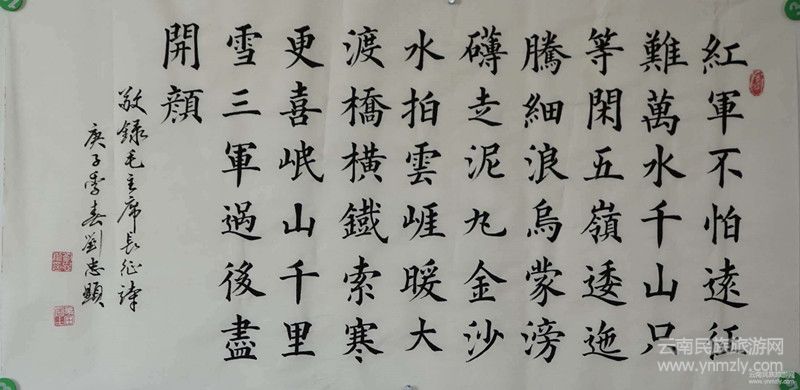 紅軍不怕遠征
難萬水千山只
等閑五嶺逶迤
騰細浪烏蒙滂
礴走泥丸金沙
水拍雲崕暖大
渡橋橫鐵索寒
更喜岷山千里
雪三軍過後盡
開顏
敬録毛主席長征詩
庚子季春劉忠顯
云南民族旅游网
www.ynmzly.com